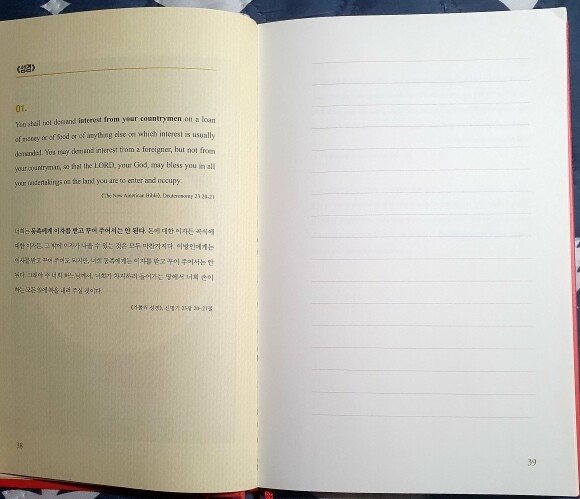 《성경》
01.
You shall not demand interest from your countrymen on a loan
of money or of food or of anything else on which interest is usually
demanded. You may demand interest from a foreigner, but not from
your countryman, so that the LORD, your God, may bless you in all
your undertakings on the land you are to enter and occupy.
《The New American Bible》, Deuteronomy 23:20-21
너희는 동족에게 이자를 받고 꾸어 주어서는 안 된다. 돈에 대한 이자든 곡식에
대한 이자든, 그 밖에 이자가 나올 수 있는 것은 모두 마찬가지다. 이방인에게는
이자를 받고 꾸어 주어도 되지만, 너희 동족에게는 이자를 받고 꾸어 주어서는 안
된다. 그래야 주 너희 하느님께서, 너희가 차지하러 들어가는 땅에서 너희 손이
하는 모든 일에 복을 내려 주실 것이다.
《가톨릭 성경》, 신명기 23장 20~21절
38
39